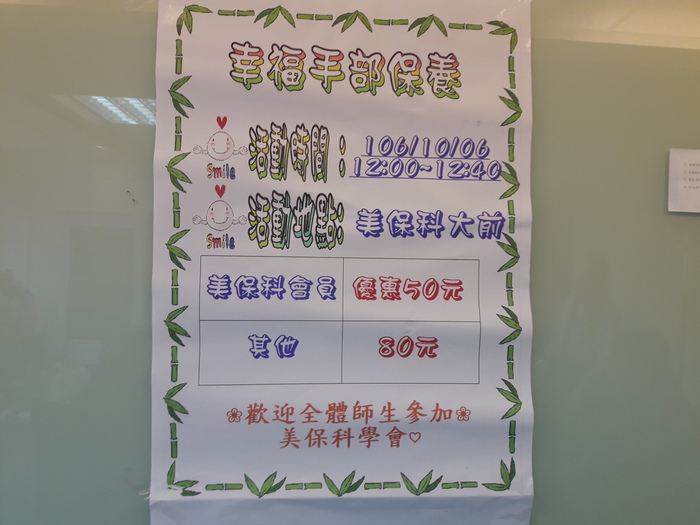 幸福手部保養
Smile 活動時間：106/10/06
12:00~12:40
Smile 活動地點：美保科大前
美保科會員 優惠50元
其他 80元
歡迎全體師生參加
美保科學會♡